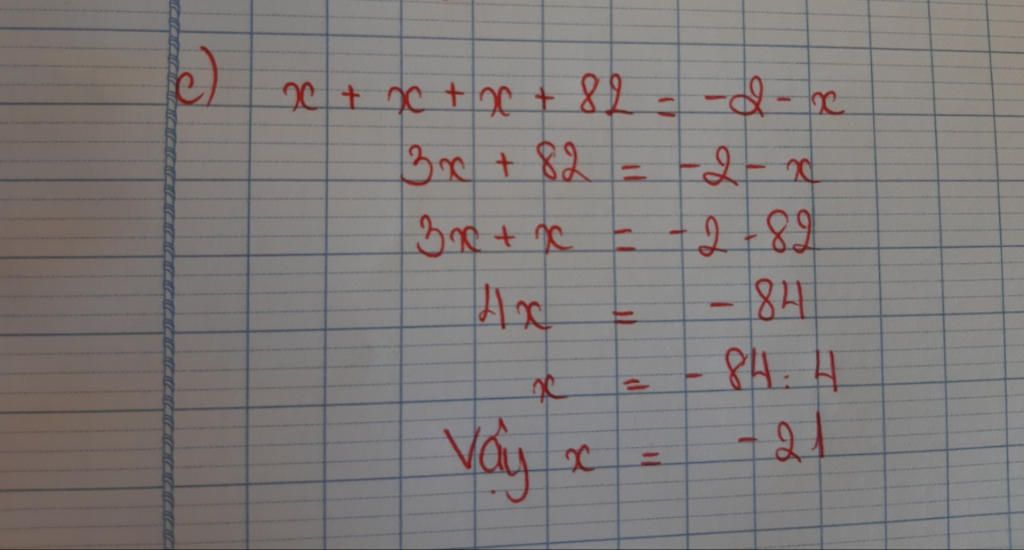 c) x + x + x + 82 = -2 - x
3x + 82 = -2 - x
3x + x = -2 - 82
4x = -84
x = -84 : 4
Vậy x = -21